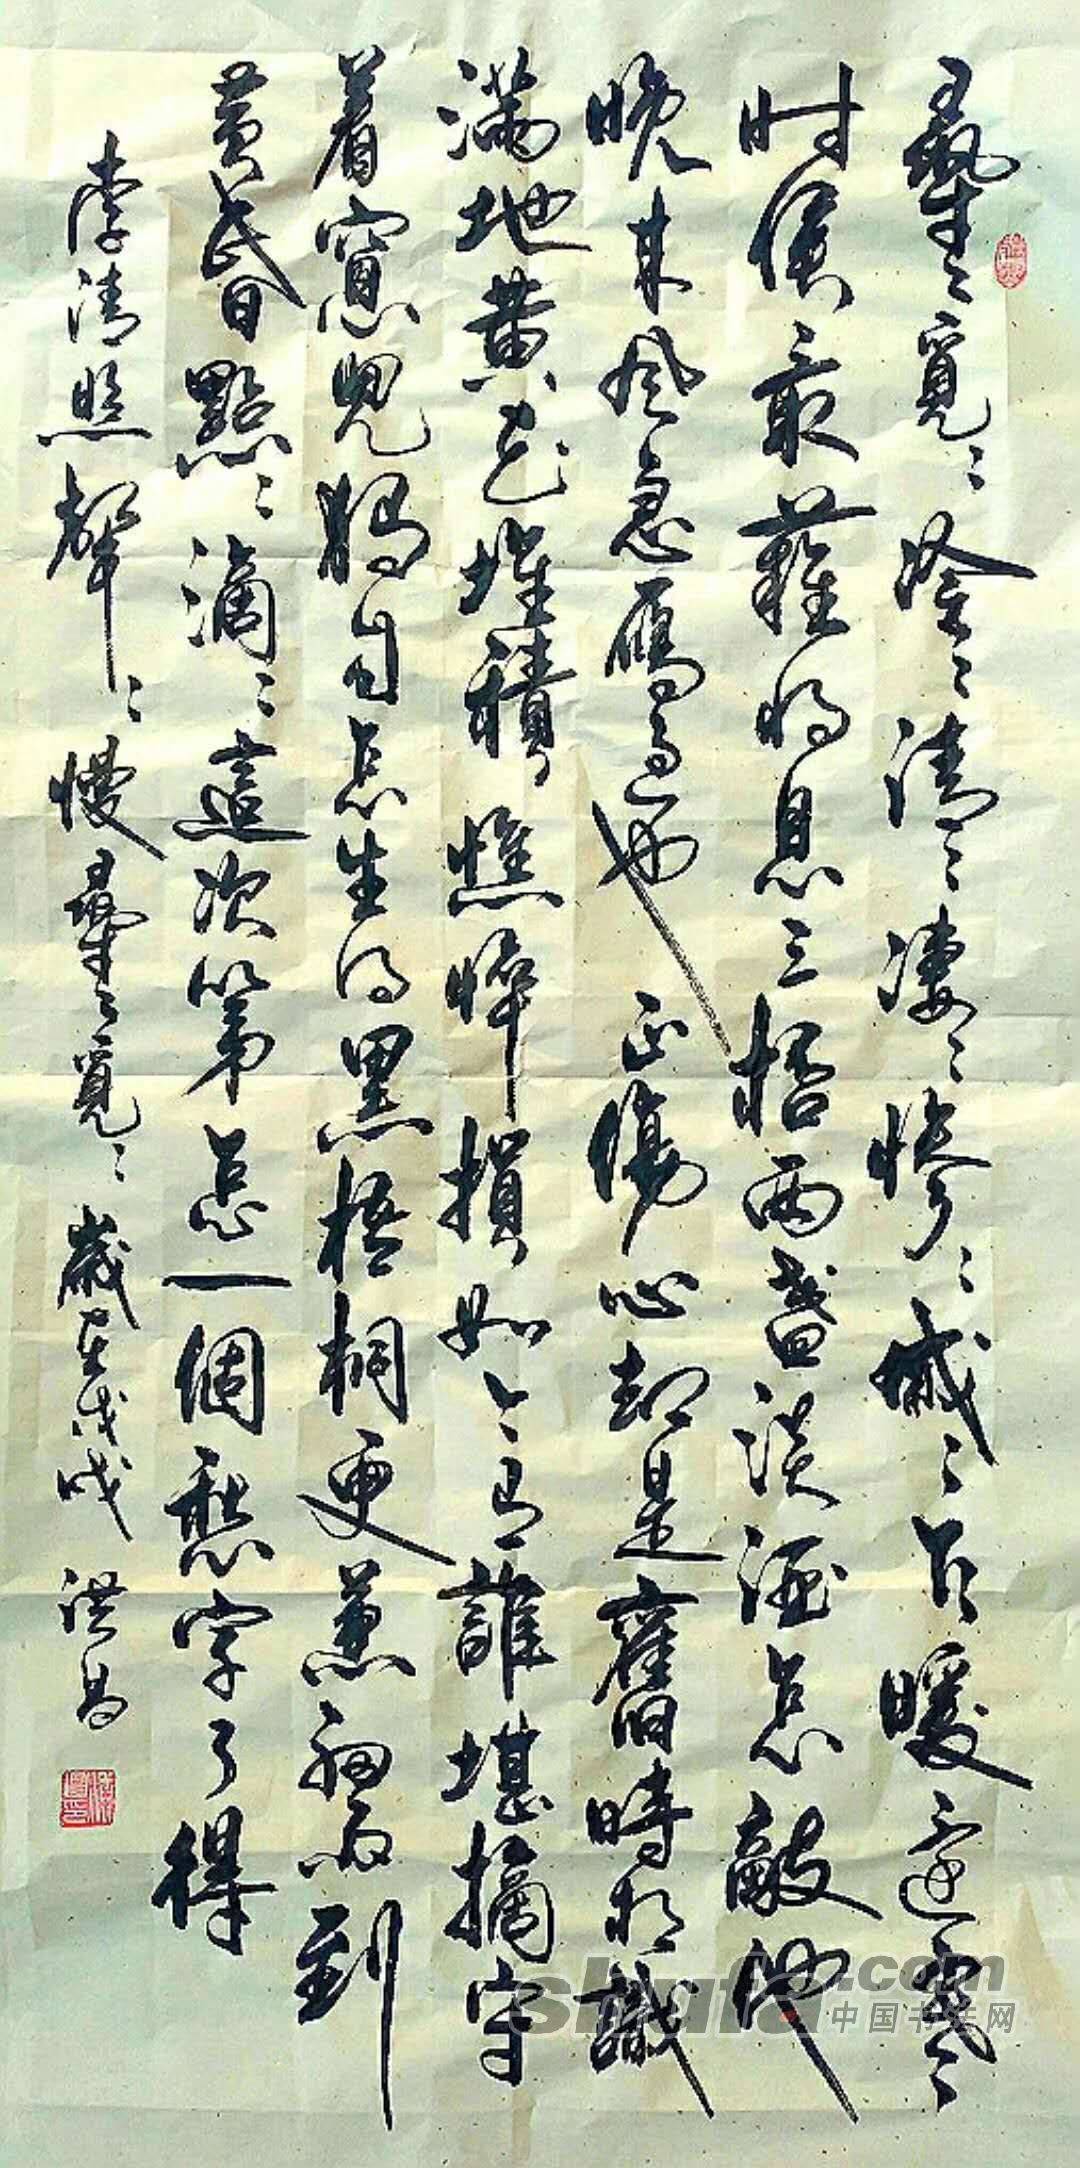 尋〻覓〻冷〻清〻凄〻慘〻慼〻乍暖還寒〻
时候最難將息三桮兩盏淡酒怎敵他
晚来风急雁過也正傷心却是舊時相識
满地黄花堆積憔悴損如今有誰堪摘守
着窓兒獨自怎生得黑梧桐更兼細雨到
黄昏點〻滴〻這次第怎一個愁字了得
李清照聲〻慢尋〻覓〻歲在戊戌洪昌
shufa.com
中国书法网